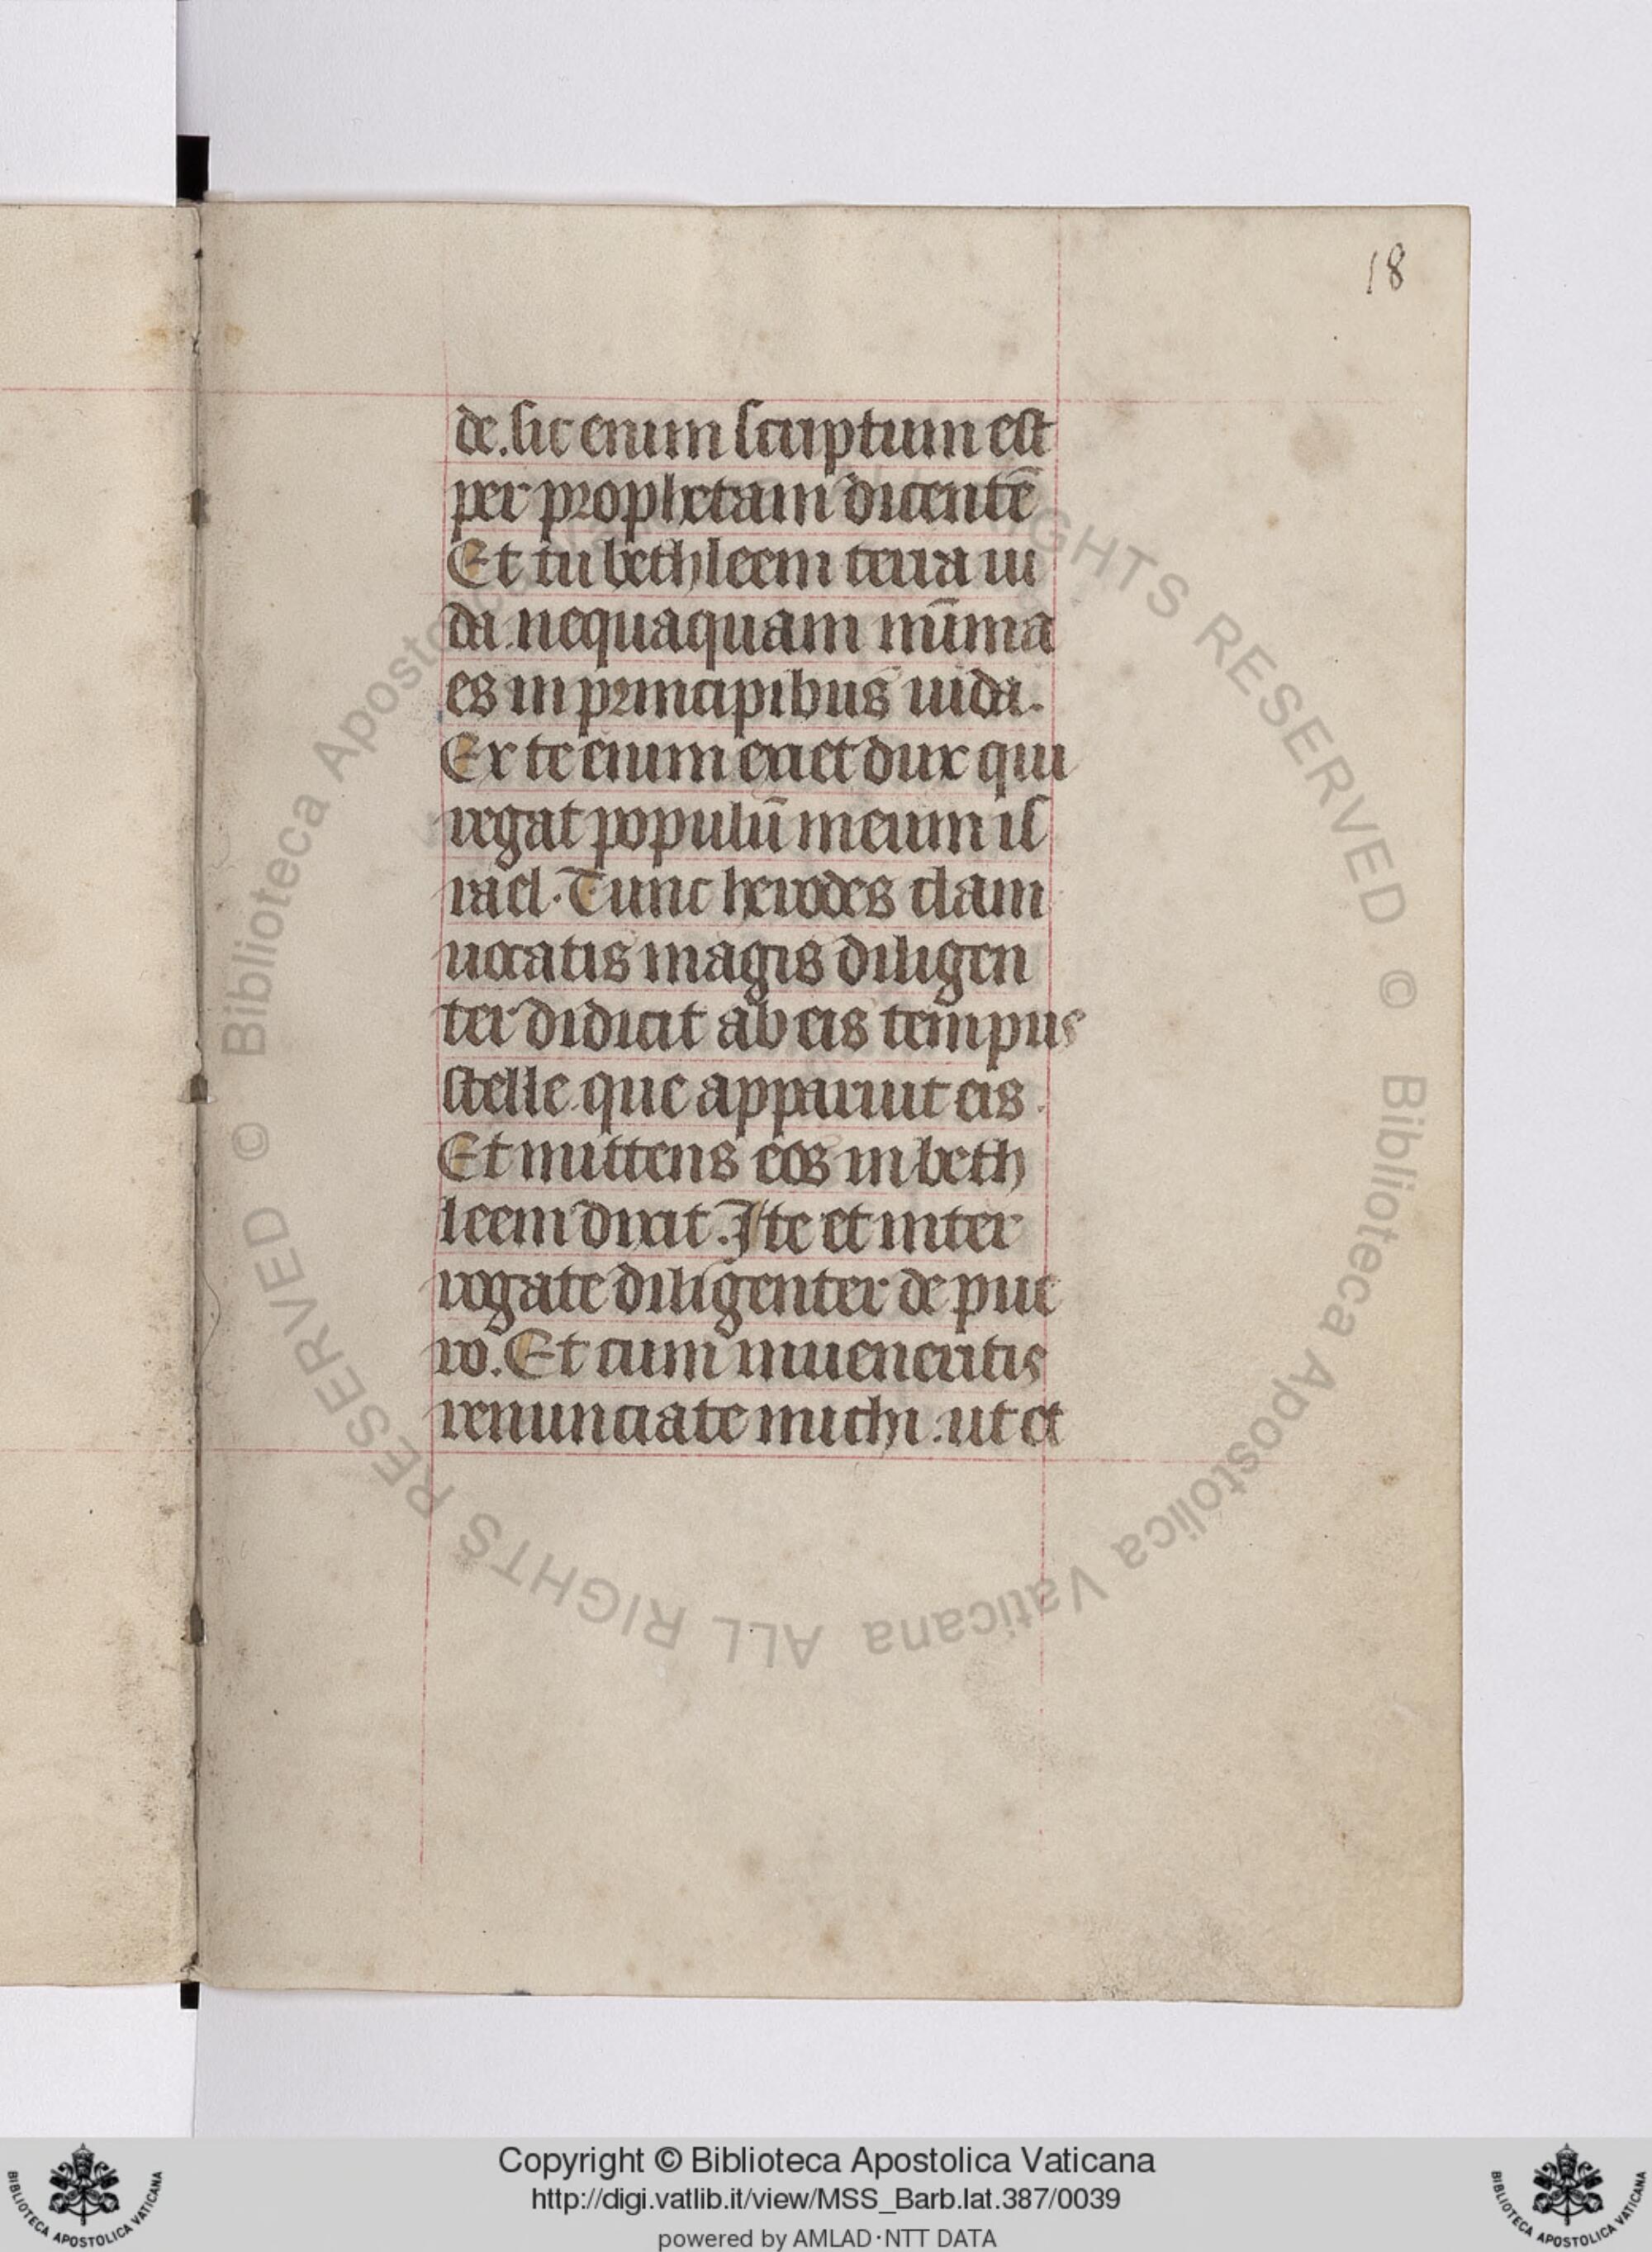 18
de. sic enim scriptum est
per prophetam dicentē
Et tu bethleem terra iu
da nequaquam mīma
es in principibus iuda.
Ex te enim exiet dux qui
regat populū meum is
rael. Tunc herodes clam
uocatis magis diligen
ter didicit ab eis tempus
stelle que apparuit eis.
Et mittens eos in beth
leem dixit. Ite et inter
rogate diligenter de pue
ro. Et cum inueneritis
renunciate michi. ut et
© Biblioteca Apostolica Vaticana ALL RIGHTS RESERVED
© Biblioteca Apostolica Vaticana ALL RIGHTS RESERVED
Copyright © Biblioteca Apostolica Vaticana
http://digi.vatlib.it/view/MSS_Barb.lat.387/0039
powered by AMLAD·NTT DATA
BIBLIOTECA APOSTOLICA VATICANA
BIBLIOTECA APOSTOLICA VATICANA